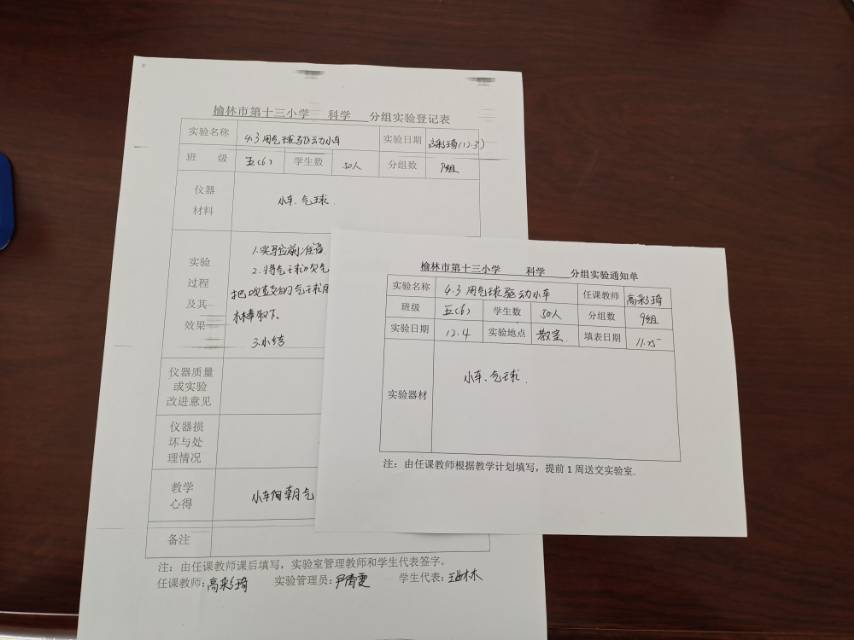 榆林市第十三小学 科学 分组实验登记表
实验名称 4.3 用气球驱动小车 实验日期 高彩琦(12.3)
班 级 五(6) 学生数 50人 分组数 9组
仪器
材料
小车、气球.
实验
过程
及其
效果
1.实验前准备
2.将气球吹气
把 气球
取下.
3.小结
仪器质量
或实验
改进意见
仪器损
坏与处
理情况
教学
心得
小车 朝 气
备注
注：由任课教师课后填写，实验室管理教师和学生代表签字。
任课教师：高彩琦 实验管理员： 学生代表：
榆林市第十三小学 科学 分组实验通知单
实验名称 4.3 用气球驱动小车 任课教师 高彩琦
班级 五(6) 学生数 50人 分组数 9组
实验日期 12.4 实验地点 教室 填表日期 11.25
实验器材 小车、气球.
注：由任课教师根据教学计划填写，提前1周送交实验室.